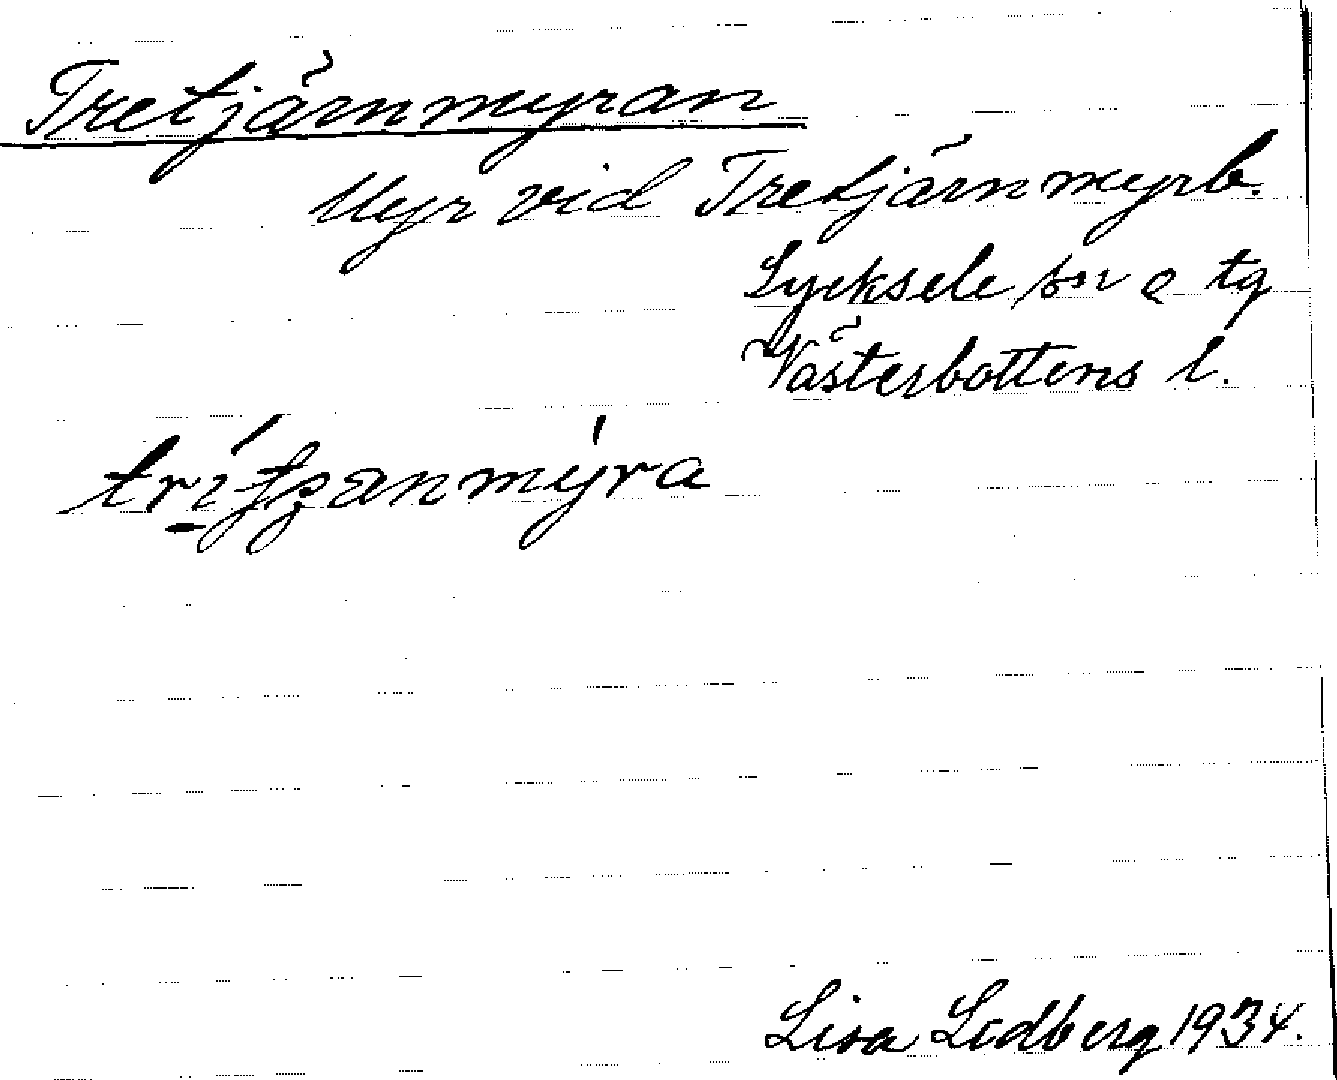 Tretjärnmyran
Myr vid Tretjärnmyrb.
Lycksele sn o tg
Västerbottens l.
Lisa Lidberg 1934.